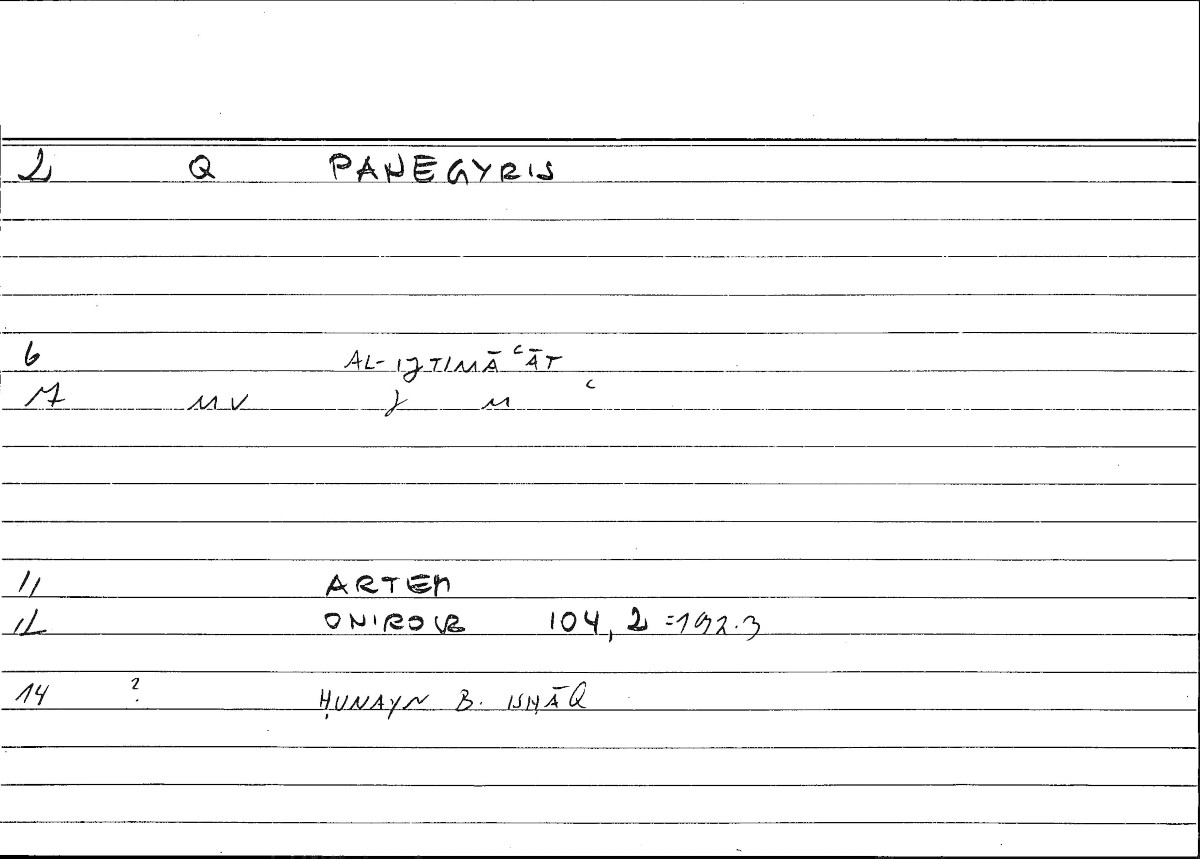 2 Q PANEGYRIS
6 AL-IJTIMĀʿĀT
7 MV J M ʿ
11 ARTEM
12 ONIROCR 104, 2 =192.3
14 ? ḤUNAYN B. ISḤĀQ